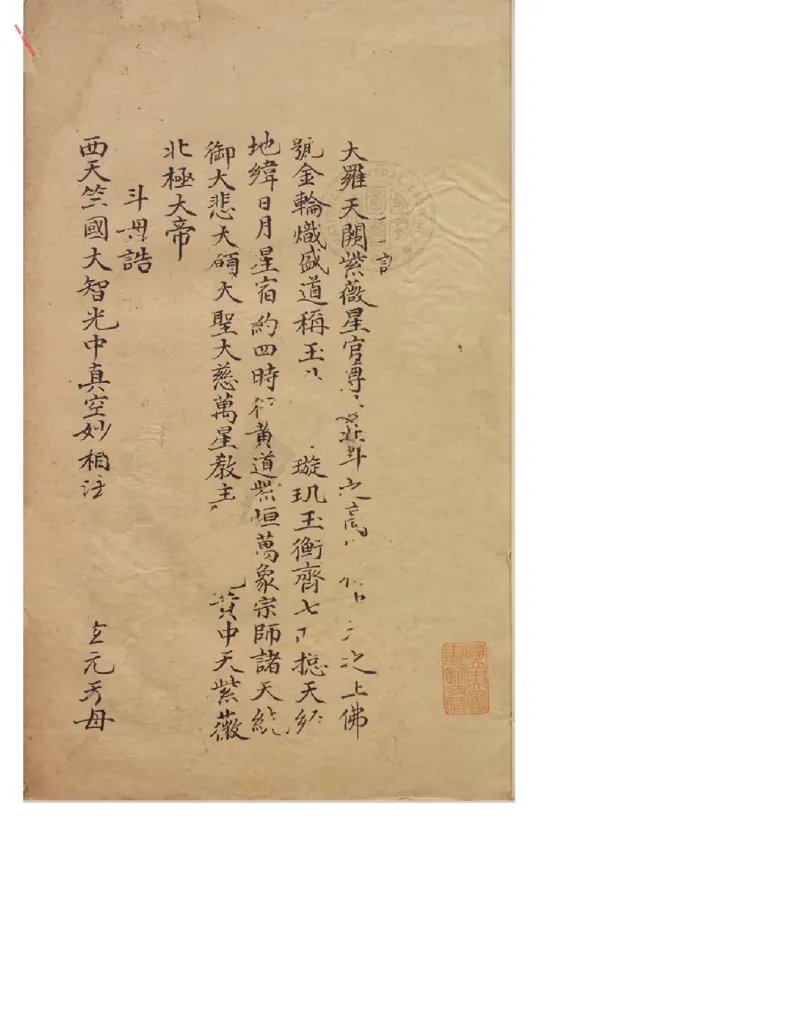 誥
大羅天闕紫薇星官尊居北斗之高之上佛
號金輪熾盛道稱玉璇玑玉衡齊七揔天經
地緯日月星宿約四時行黄道紫垣萬象宗師諸天統
御大悲大願大聖大慈萬星教主黄中天紫薇
北極大帝
斗母誥
西天竺國大智光中真空妙相法玄元天母